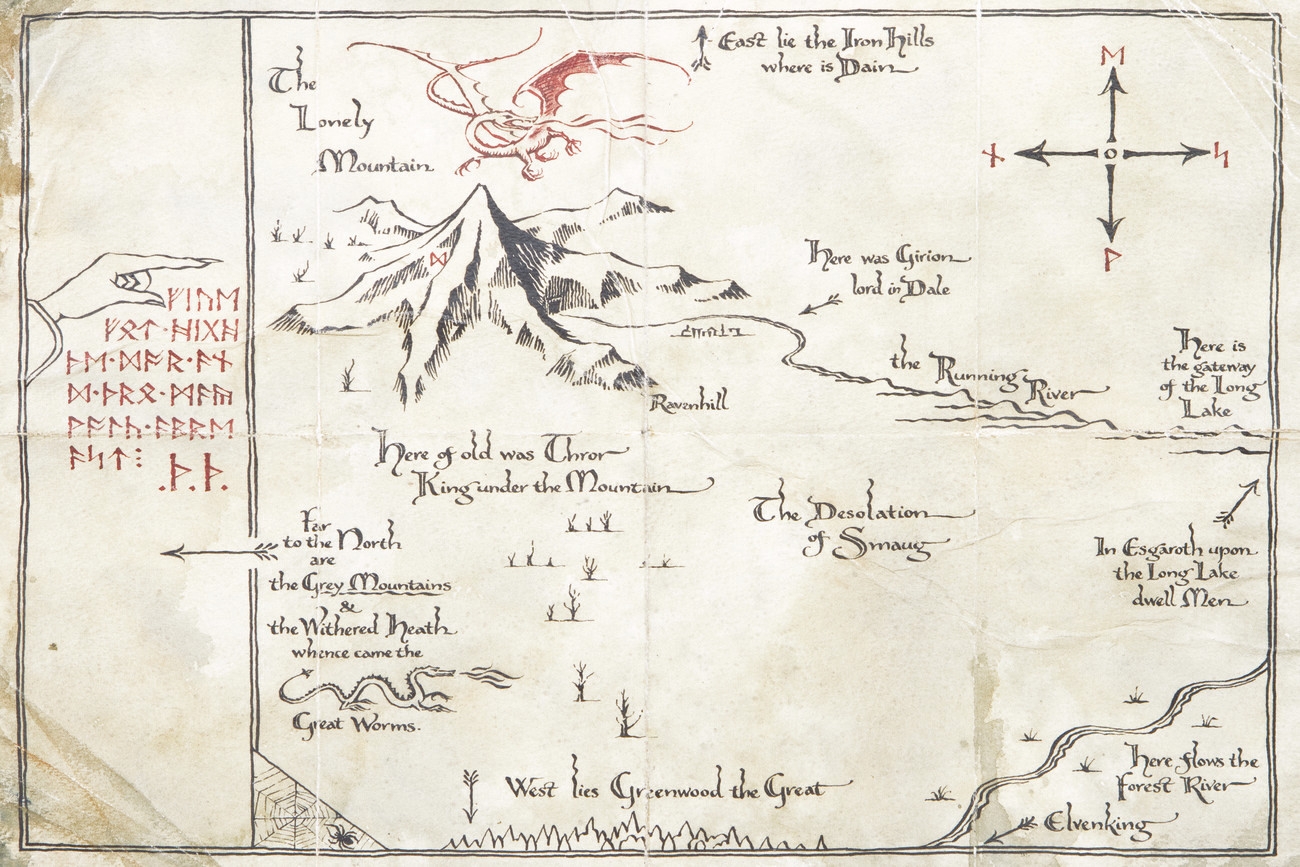 The
Lonely
Mountain
East lie the Iron Hills
where is Dain
ᛖ
ᚾ
ᛋ
ᚹ
ᛞ
ᚠᛁᚢᛖ
ᚠᛟᛏ·ᚻᛁᚷᚻ
ᚦᛖ·ᛞᚩᚱ·ᚪᚾ
ᛞ·ᚦᚱᛟ·ᛗᚪᚣ
ᚹᚪᛚᚳ·ᚪᛒᚱᛖ
ᚪᛋᛏ⁝
.ᚦ.ᚦ.
Here was Girion
lord in Dale
the Running River
Here is
the gateway
of the Long
Lake
Ravenhill
Here of old was Thror
King under the Mountain
The Desolation
of Smaug
Far
to the North
are
the Grey Mountains
&
the Withered Heath
whence came the
Great Worms.
In Esgaroth upon
the Long Lake
dwell Men
West lies Greenwood the Great
Here flows the
forest River
Elvenking